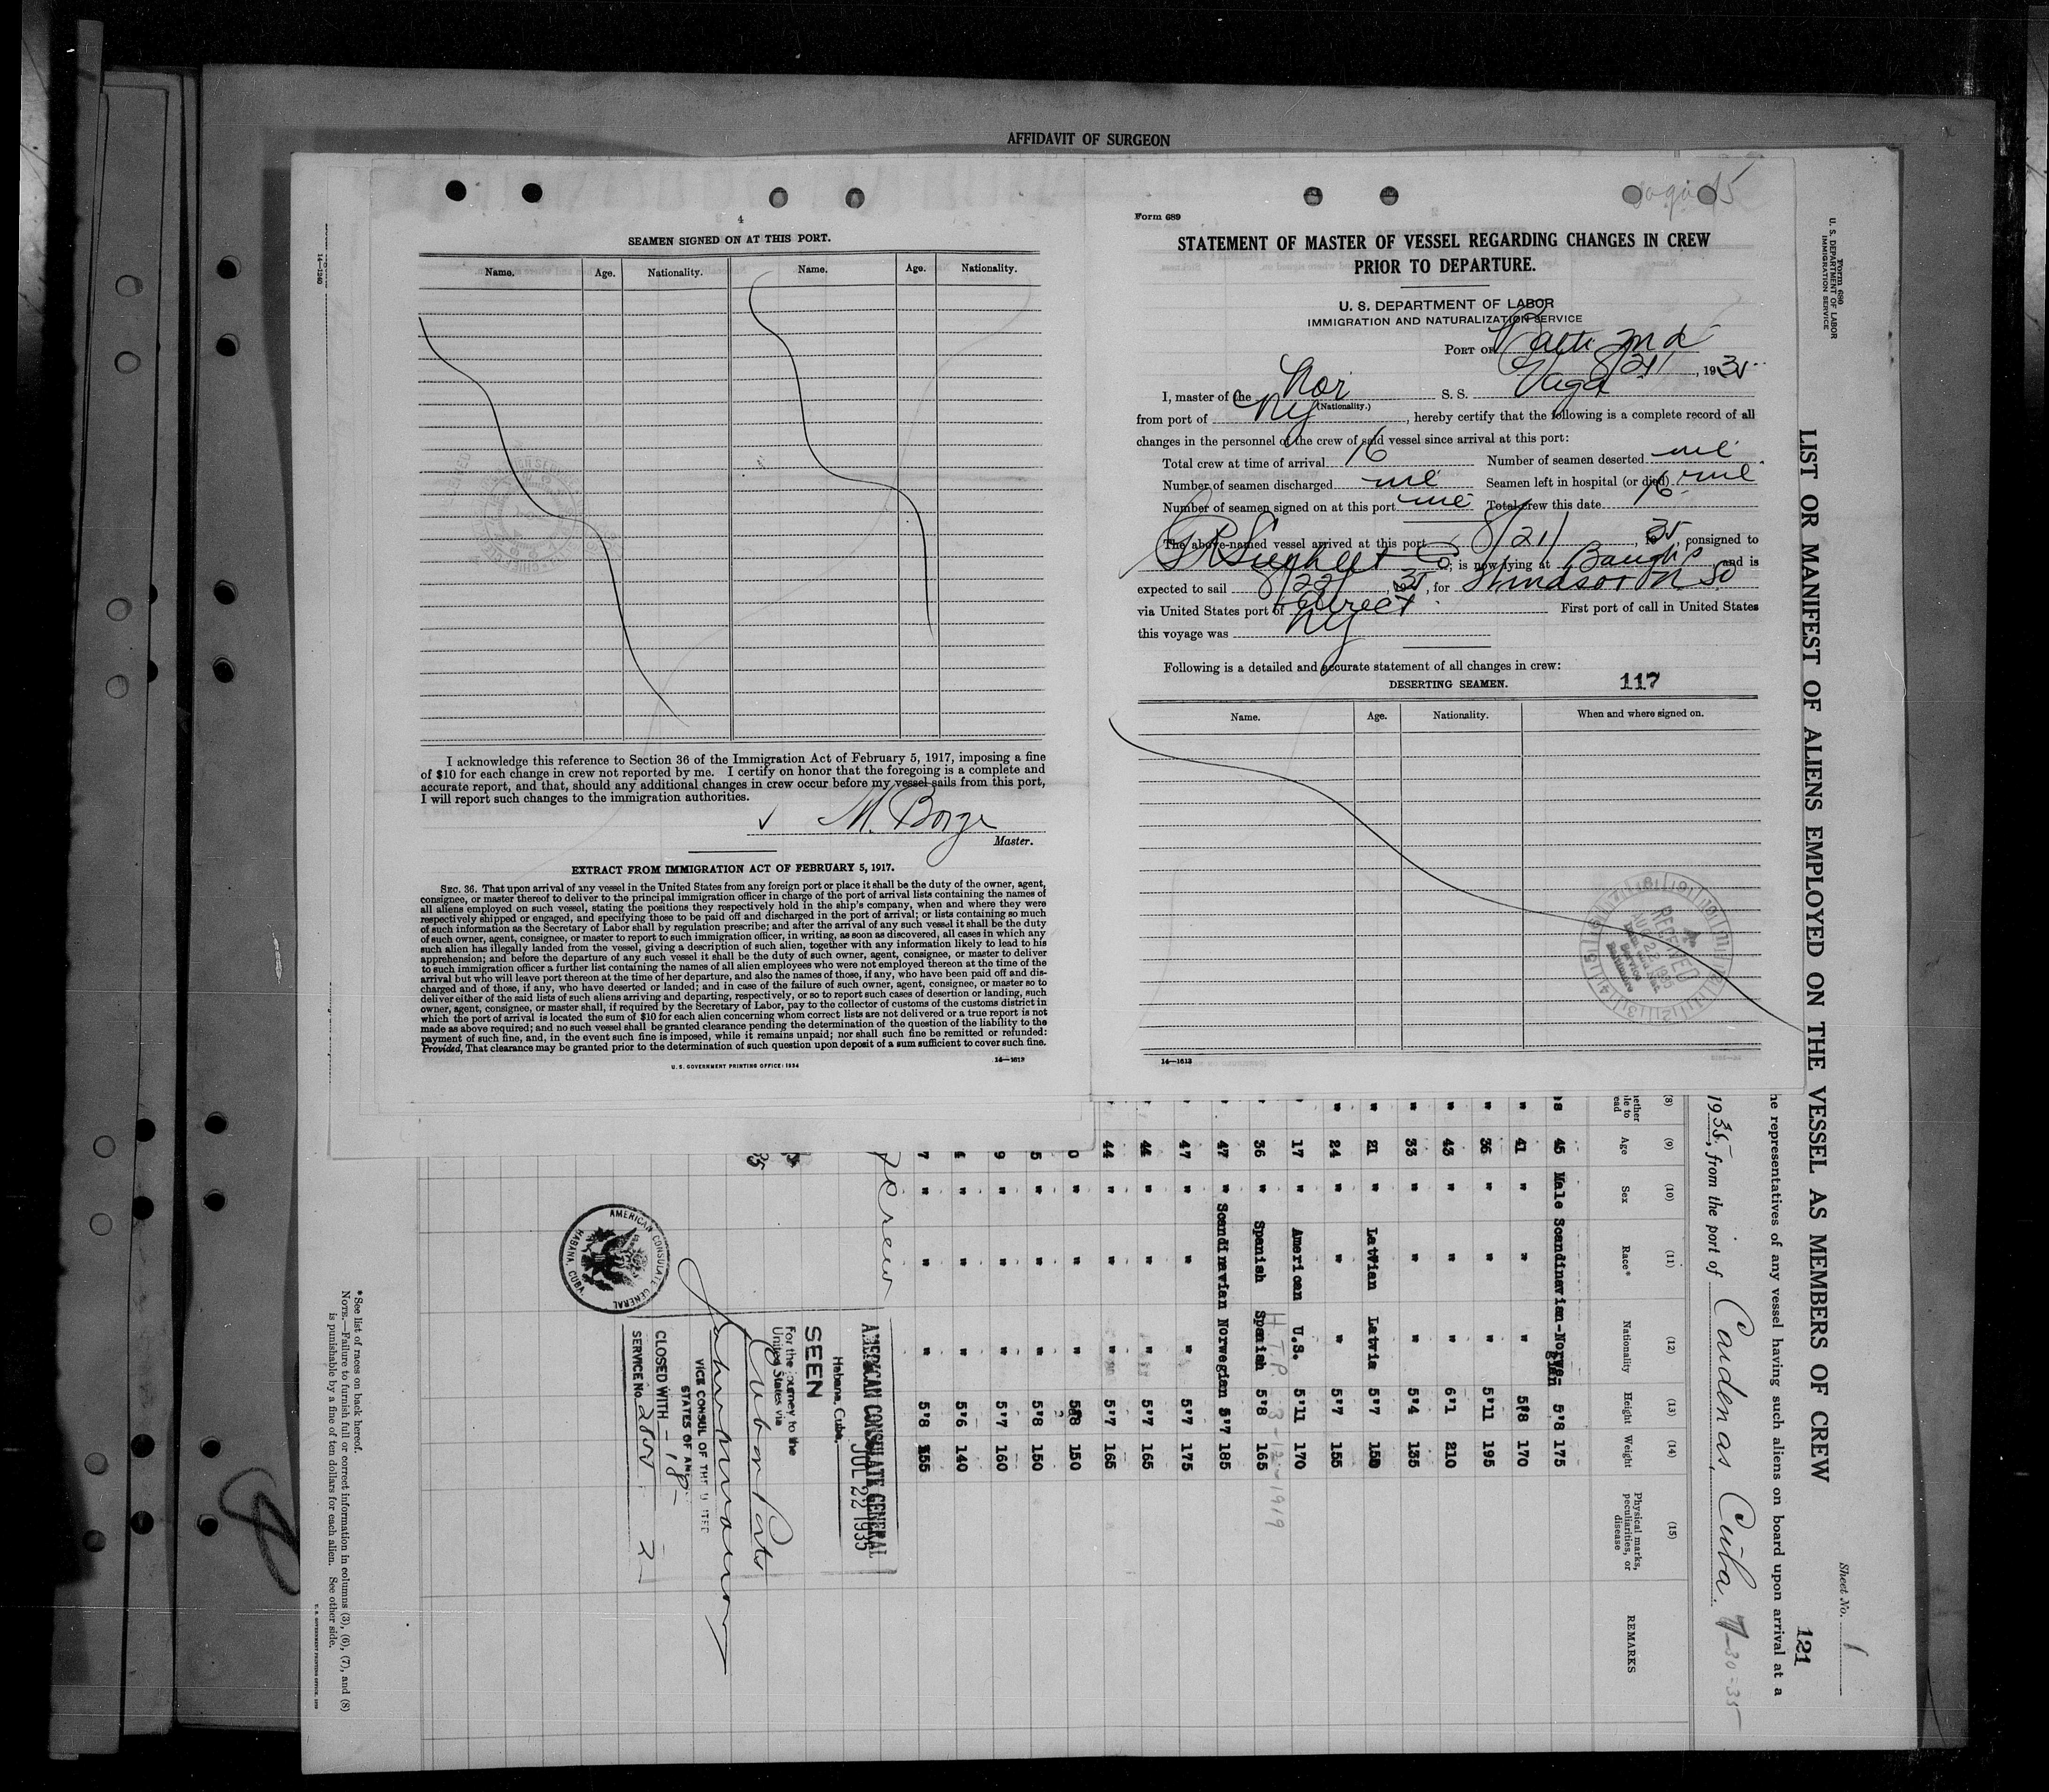 AFFIDAVIT OF SURGEON
4
SEAMEN SIGNED ON AT THIS PORT.
Name. Age. Nationality. Name. Age. Nationality.
I acknowledge this reference to Section 36 of the Immigration Act of February 5, 1917, imposing a fine
of $10 for each change in crew not reported by me. I certify on honor that the foregoing is a complete and
accurate report, and that, should any additional changes in crew occur before my vessel sails from this port,
I will report such changes to the immigration authorities.
✓ M. Borge
Master.
EXTRACT FROM IMMIGRATION ACT OF FEBRUARY 5, 1917.
SEC. 36. That upon arrival of any vessel in the United States from any foreign port or place it shall be the duty of the owner, agent,
consignee, or master thereof to deliver to the principal immigration officer in charge of the port of arrival lists containing the names of
all aliens employed on such vessel, stating the positions they respectively hold in the ship's company, when and where they were
respectively shipped or engaged, and specifying those to be paid off and discharged in the port of arrival; or lists containing so much
of such information as the Secretary of Labor shall by regulation prescribe; and after the arrival of any such vessel it shall be the duty
of such owner, agent, consignee, or master to report to such immigration officer, in writing, as soon as discovered, all cases in which any
such alien has illegally landed from the vessel, giving a description of such alien, together with any information likely to lead to his
apprehension; and before the departure of any such vessel it shall be the duty of such owner, agent, consignee, or master to deliver
to such immigration officer a further list containing the names of all alien employees who were not employed thereon at the time of the
arrival but who will leave port thereon at the time of her departure, and also the names of those, if any, who have been paid off and dis-
charged and of those, if any, who have deserted or landed; and in case of the failure of such owner, agent, consignee, or master so to
deliver either of the said lists of such aliens arriving and departing, respectively, or so to report such cases of desertion or landing, such
owner, agent, consignee, or master shall, if required by the Secretary of Labor, pay to the collector of customs of the customs district in
which the port of arrival is located the sum of $10 for each alien concerning whom correct lists are not delivered or a true report is not
made as above required; and no such vessel shall be granted clearance pending the determination of the question of the liability to the
payment of such fine, and, in the event such fine is imposed, while it remains unpaid; nor shall such fine be remitted or refunded:
Provided, That clearance may be granted prior to the determination of such question upon deposit of a sum sufficient to cover such fine.
U. S. GOVERNMENT PRINTING OFFICE: 1934 14—1613
Form 689
STATEMENT OF MASTER OF VESSEL REGARDING CHANGES IN CREW
PRIOR TO DEPARTURE.
U. S. DEPARTMENT OF LABOR
IMMIGRATION AND NATURALIZATION SERVICE
PORT OF Balto Md
8/21, 1935
I, master of the Nor S. S. Vaga
(Nationality.)
from port of NY, hereby certify that the following is a complete record of all
changes in the personnel of the crew of said vessel since arrival at this port:
Total crew at time of arrival 16 Number of seamen deserted nil
Number of seamen discharged nil Seamen left in hospital (or died) nil
Number of seamen signed on at this port nil Total crew this date 16
The above-named vessel arrived at this port 8/21, 1935, consigned to
Co; is now lying at Baugh's and is
expected to sail 8/22, 1935, for Windsor N So
via United States port of direct First port of call in United States
this voyage was NY
Following is a detailed and accurate statement of all changes in crew:
DESERTING SEAMEN. 117
Name. Age. Nationality. When and where signed on.
RECEIVED
AUG 22 1935
Baltimore
14—1613
Form 680
U. S. DEPARTMENT OF LABOR
IMMIGRATION SERVICE
Sheet No. 1
LIST OR MANIFEST OF ALIENS EMPLOYED ON THE VESSEL AS MEMBERS OF CREW
121
he representatives of any vessel having such aliens on board upon arrival at a
1935, from the port of Cardenas, Cuba. 7-30-35
(8) (9) (10) (11) (12) (13) (14) (15)
Age Sex Race* Nationality Height Weight Physical marks, peculiarities, or disease REMARKS
45 Male Scandinavian-Norwegian 5'8 175
41 " " " 5'8 170
36 " " " 5'11 195
43 " " " 6'1 210
33 " " " 5'4 135
21 " Latvian Latvia 5'7 150
24 " " " 5'7 155
17 " American U.S. 5'11 170
36 " Spanish Spanish 5'8 165
47 " Scandinavian Norwegian 5'7 185
47 " " " 5'7 175
44 " " " 5'7 165
44 " " " 5'7 165
0 " " " 5'8 150
5 " " " 5'8 150
9 " " " 5'7 160
4 " " " 5'6 140
7 " " " 5'8 155
Crew
AMERICAN CONSULATE GENERAL
JUL 22 1935
Habana, Cuba.
SEEN
For the journey to the
United States via
Cuban Ports
VICE CONSUL OF THE UNITED
STATES OF AMERICA
CLOSED WITH -18-
SERVICE No.
AMERICAN CONSULATE GENERAL
HABANA, CUBA
*See list of races on back hereof.
NOTE.—Failure to furnish full or correct information in columns (3), (6), (7), and (8)
is punishable by a fine of ten dollars for each alien. See other side.
14—1240
8